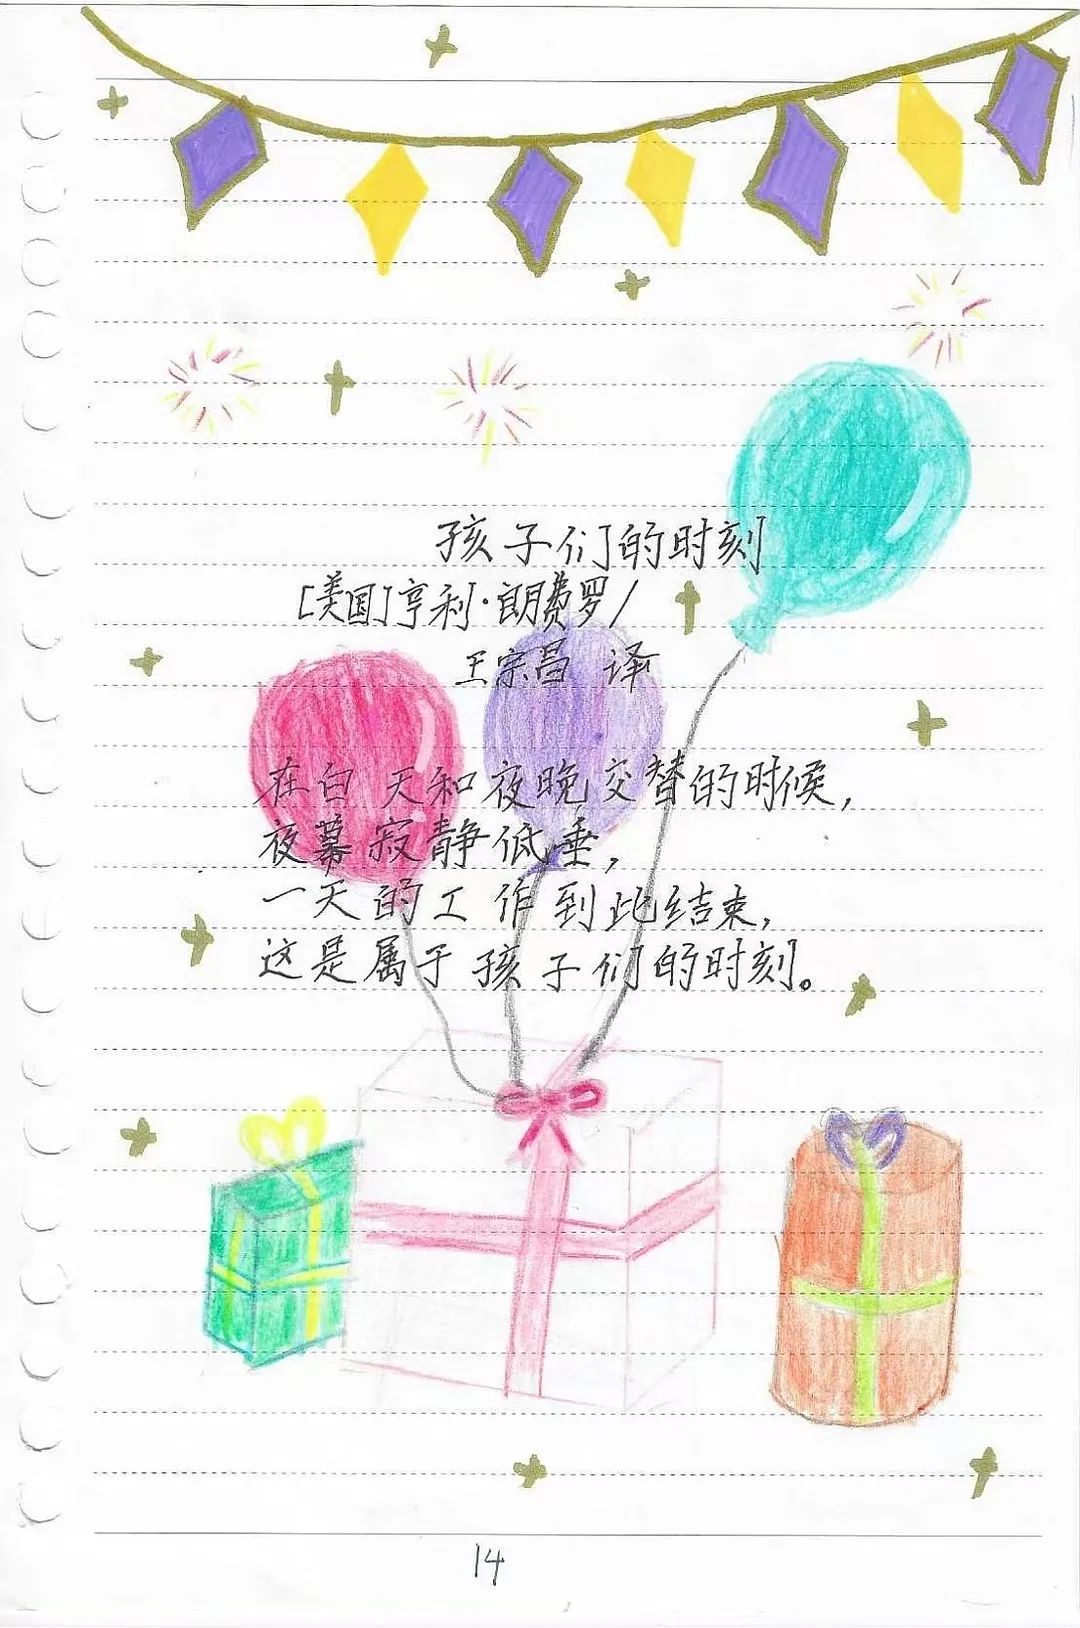 孩子们的时刻
[美国]亨利·朗费罗/
王宗昌 译
在白天和夜晚交替的时候,
夜幕寂静低垂,
一天的工作到此结束,
这是属于孩子们的时刻。
14